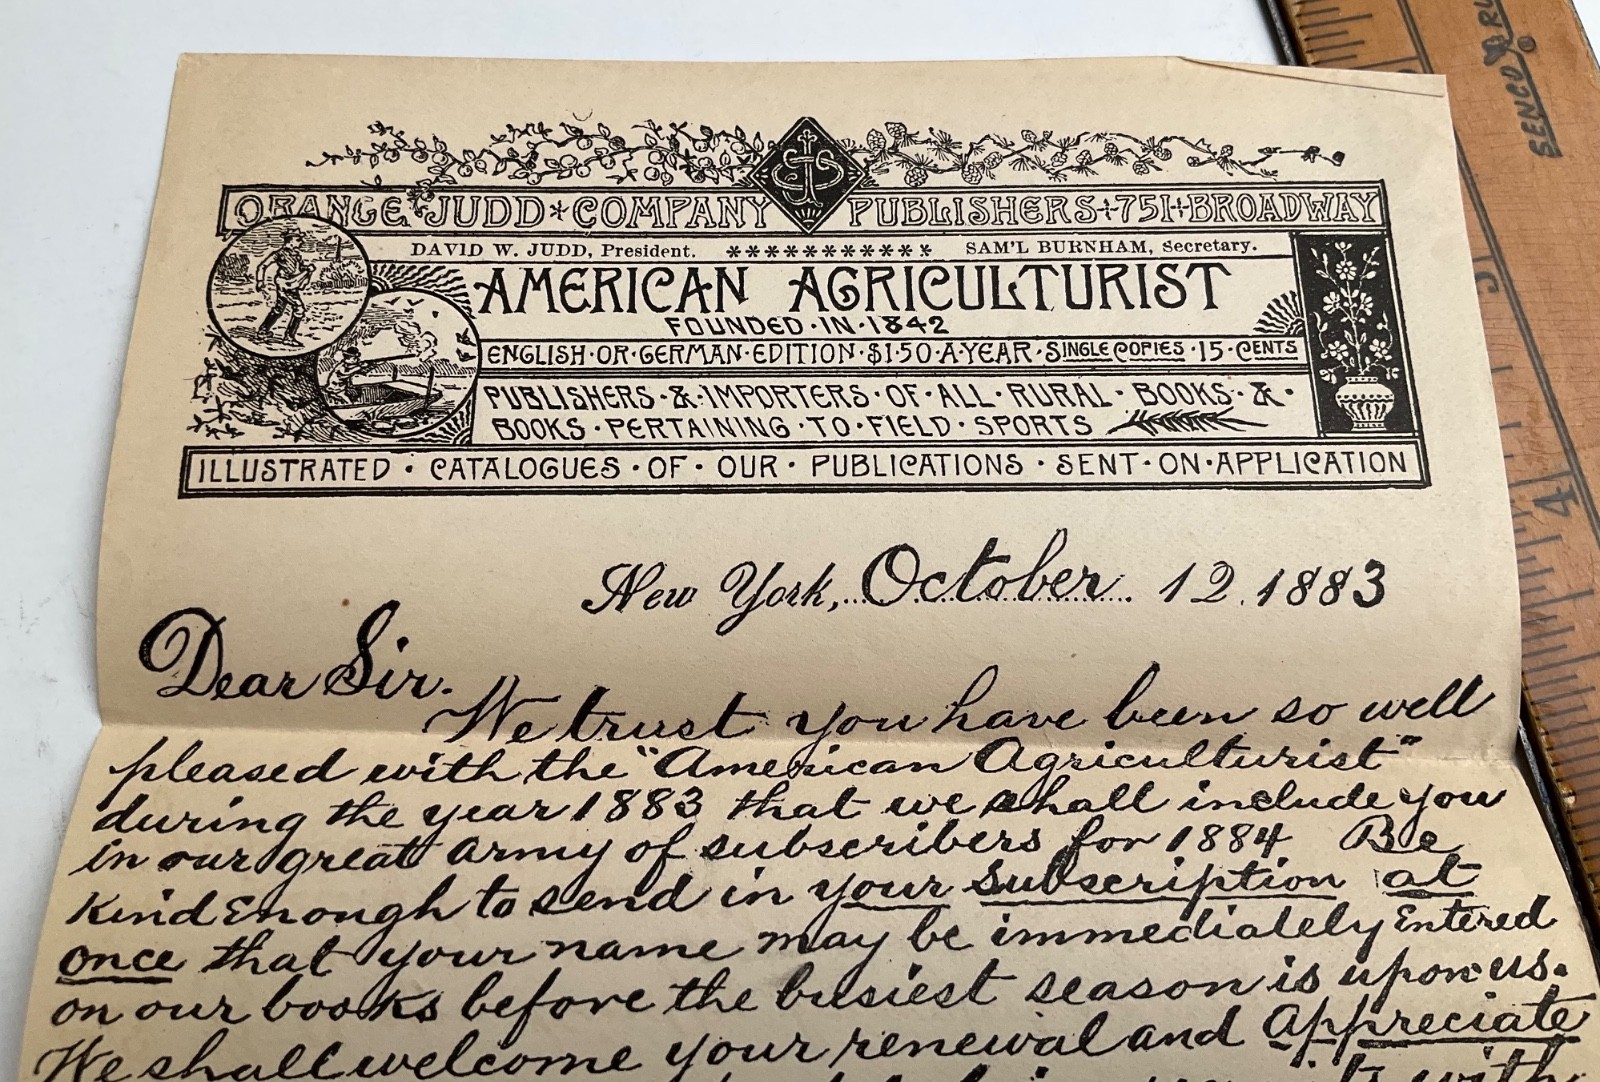 ORANGE JUDD * COMPANY PUBLISHERS + 751 + BROADWAY
DAVID W. JUDD, President. *********** SAM'L BURNHAM, Secretary.
AMERICAN AGRICULTURIST
FOUNDED · IN · 1842
ENGLISH · OR · GERMAN · EDITION · $1·50 · A · YEAR · SINGLE COPIES · 15 · CENTS
PUBLISHERS · & · IMPORTERS · OF · ALL · RURAL · BOOKS · & ·
BOOKS · PERTAINING · TO · FIELD · SPORTS
ILLUSTRATED · CATALOGUES · OF · OUR · PUBLICATIONS · SENT · ON · APPLICATION
New York, October 12. 1883
Dear Sir.
We trust you have been so well
pleased with the "American Agriculturist"
during the year 1883 that we shall include you
in our great army of subscribers for 1884 Be
Kind Enough to send in your subscription at
once that your name may be immediately Entered
on our books before the busiest season is upon us.
We shall welcome your renewal and appreciate
with
SENCO
3
4